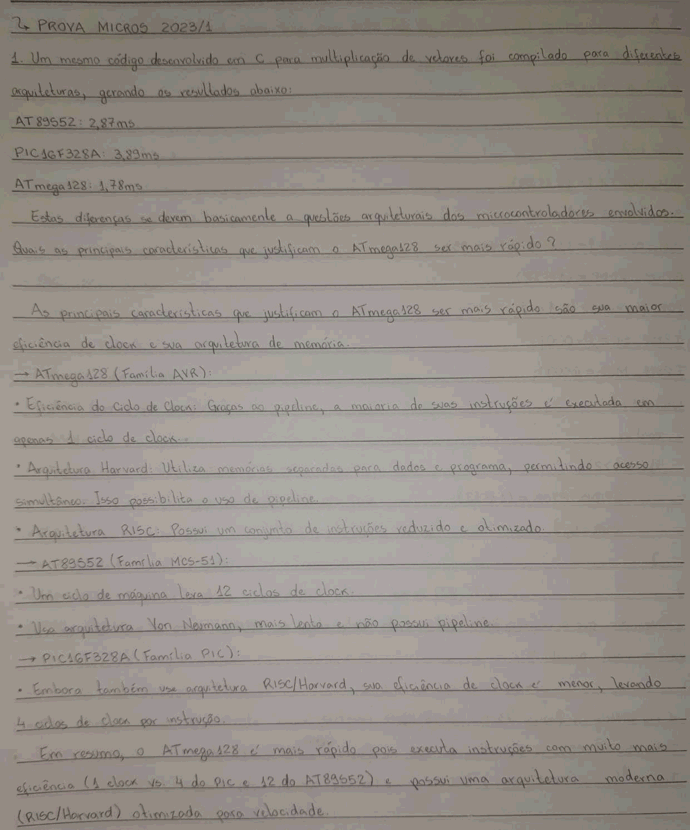 ↳ PROVA MICROS 2023/1
1. Um mesmo código desenvolvido em C para multiplicação de vetores foi compilado para diferentes
arquiteturas, gerando os resultados abaixo:
AT89S52: 2,87ms
PIC16F328A: 3,89ms
ATmega128: 1,78ms
Estas diferenças se devem basicamente a questões arquiteturais dos microcontroladores envolvidos.
Quais as principais características que justificam o ATmega128 ser mais rápido?
As principais características que justificam o ATmega128 ser mais rápido são sua maior
eficiência de clock e sua arquitetura de memória.
→ ATmega128 (Família AVR):
• Eficiência do Ciclo de Clock: Graças ao pipeline, a maioria de suas instruções é executada em
apenas 1 ciclo de clock.
• Arquitetura Harvard: Utiliza memórias separadas para dados e programa, permitindo acesso
simultâneo. Isso possibilita o uso de pipeline.
• Arquitetura RISC: Possui um conjunto de instruções reduzido e otimizado.
→ AT89S52 (Família MCS-51):
• Um ciclo de máquina leva 12 ciclos de clock.
• Usa arquitetura Von Neumann, mais lenta e não possui pipeline.
→ PIC16F328A (Família PIC):
• Embora também use arquitetura RISC/Harvard, sua eficiência de clock é menor, levando
4 ciclos de clock por instrução.
Em resumo, o ATmega128 é mais rápido pois executa instruções com muito mais
eficiência (1 clock vs. 4 do PIC e 12 do AT89S52) e possui uma arquitetura moderna
(RISC/Harvard) otimizada para velocidade.